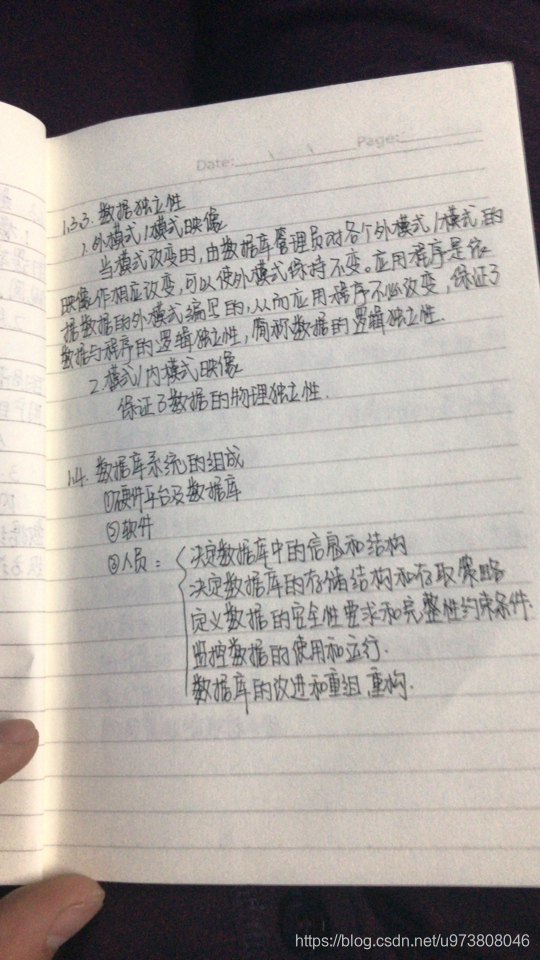 Date: \ \ Page:
1.3.3. 数据独立性
1.外模式/模式映像
当模式改变时,由数据库管理员对各个外模式/模式的
映像作相应改变,可以使外模式保持不变。应用程序是依
据数据的外模式编写的,从而应用程序不必改变,保证了
数据与程序的逻辑独立性,简称数据的逻辑独立性.
2.模式/内模式映像
保证了数据的物理独立性.
1.4. 数据库系统的组成
①硬件平台及数据库
②软件
③人员: 决定数据库中的信息和结构
决定数据库的存储结构和存取策略
定义数据的安全性要求和完整性约束条件.
监控数据的使用和运行.
数据库的改进和重组、重构.
https://blog.csdn.net/u973808046